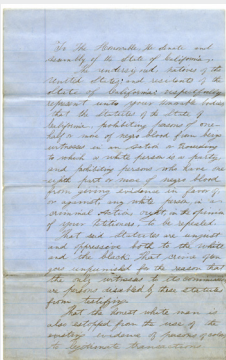 To The Honorable, the Senate and
Assembly of the State of California,
The undersigned, natives of the
United States, and residents of the
State of California respectfully
represent unto your honorable bodies
that the Statutes of the State of
California, prohibiting persons of one-
half or more of negro blood from being
witnesses in an action or proceeding
to which a white person is a party,
and prohibiting persons who have one
eighth part or more of negro blood,
from giving evidence in favor of,
or against, any white person, in a
criminal action ought, in the opinion
of your Petitioners, to be repealed.
That said Statutes are unjust
and oppressive both to the white
and the black, that crime
goes unpunished for the reason that
the only witnesses to its commission
are persons disabled by these statutes
from testifying.
That the honest white man is
also estopped from the use of the
evidence of persons of color
to legitimate transactions